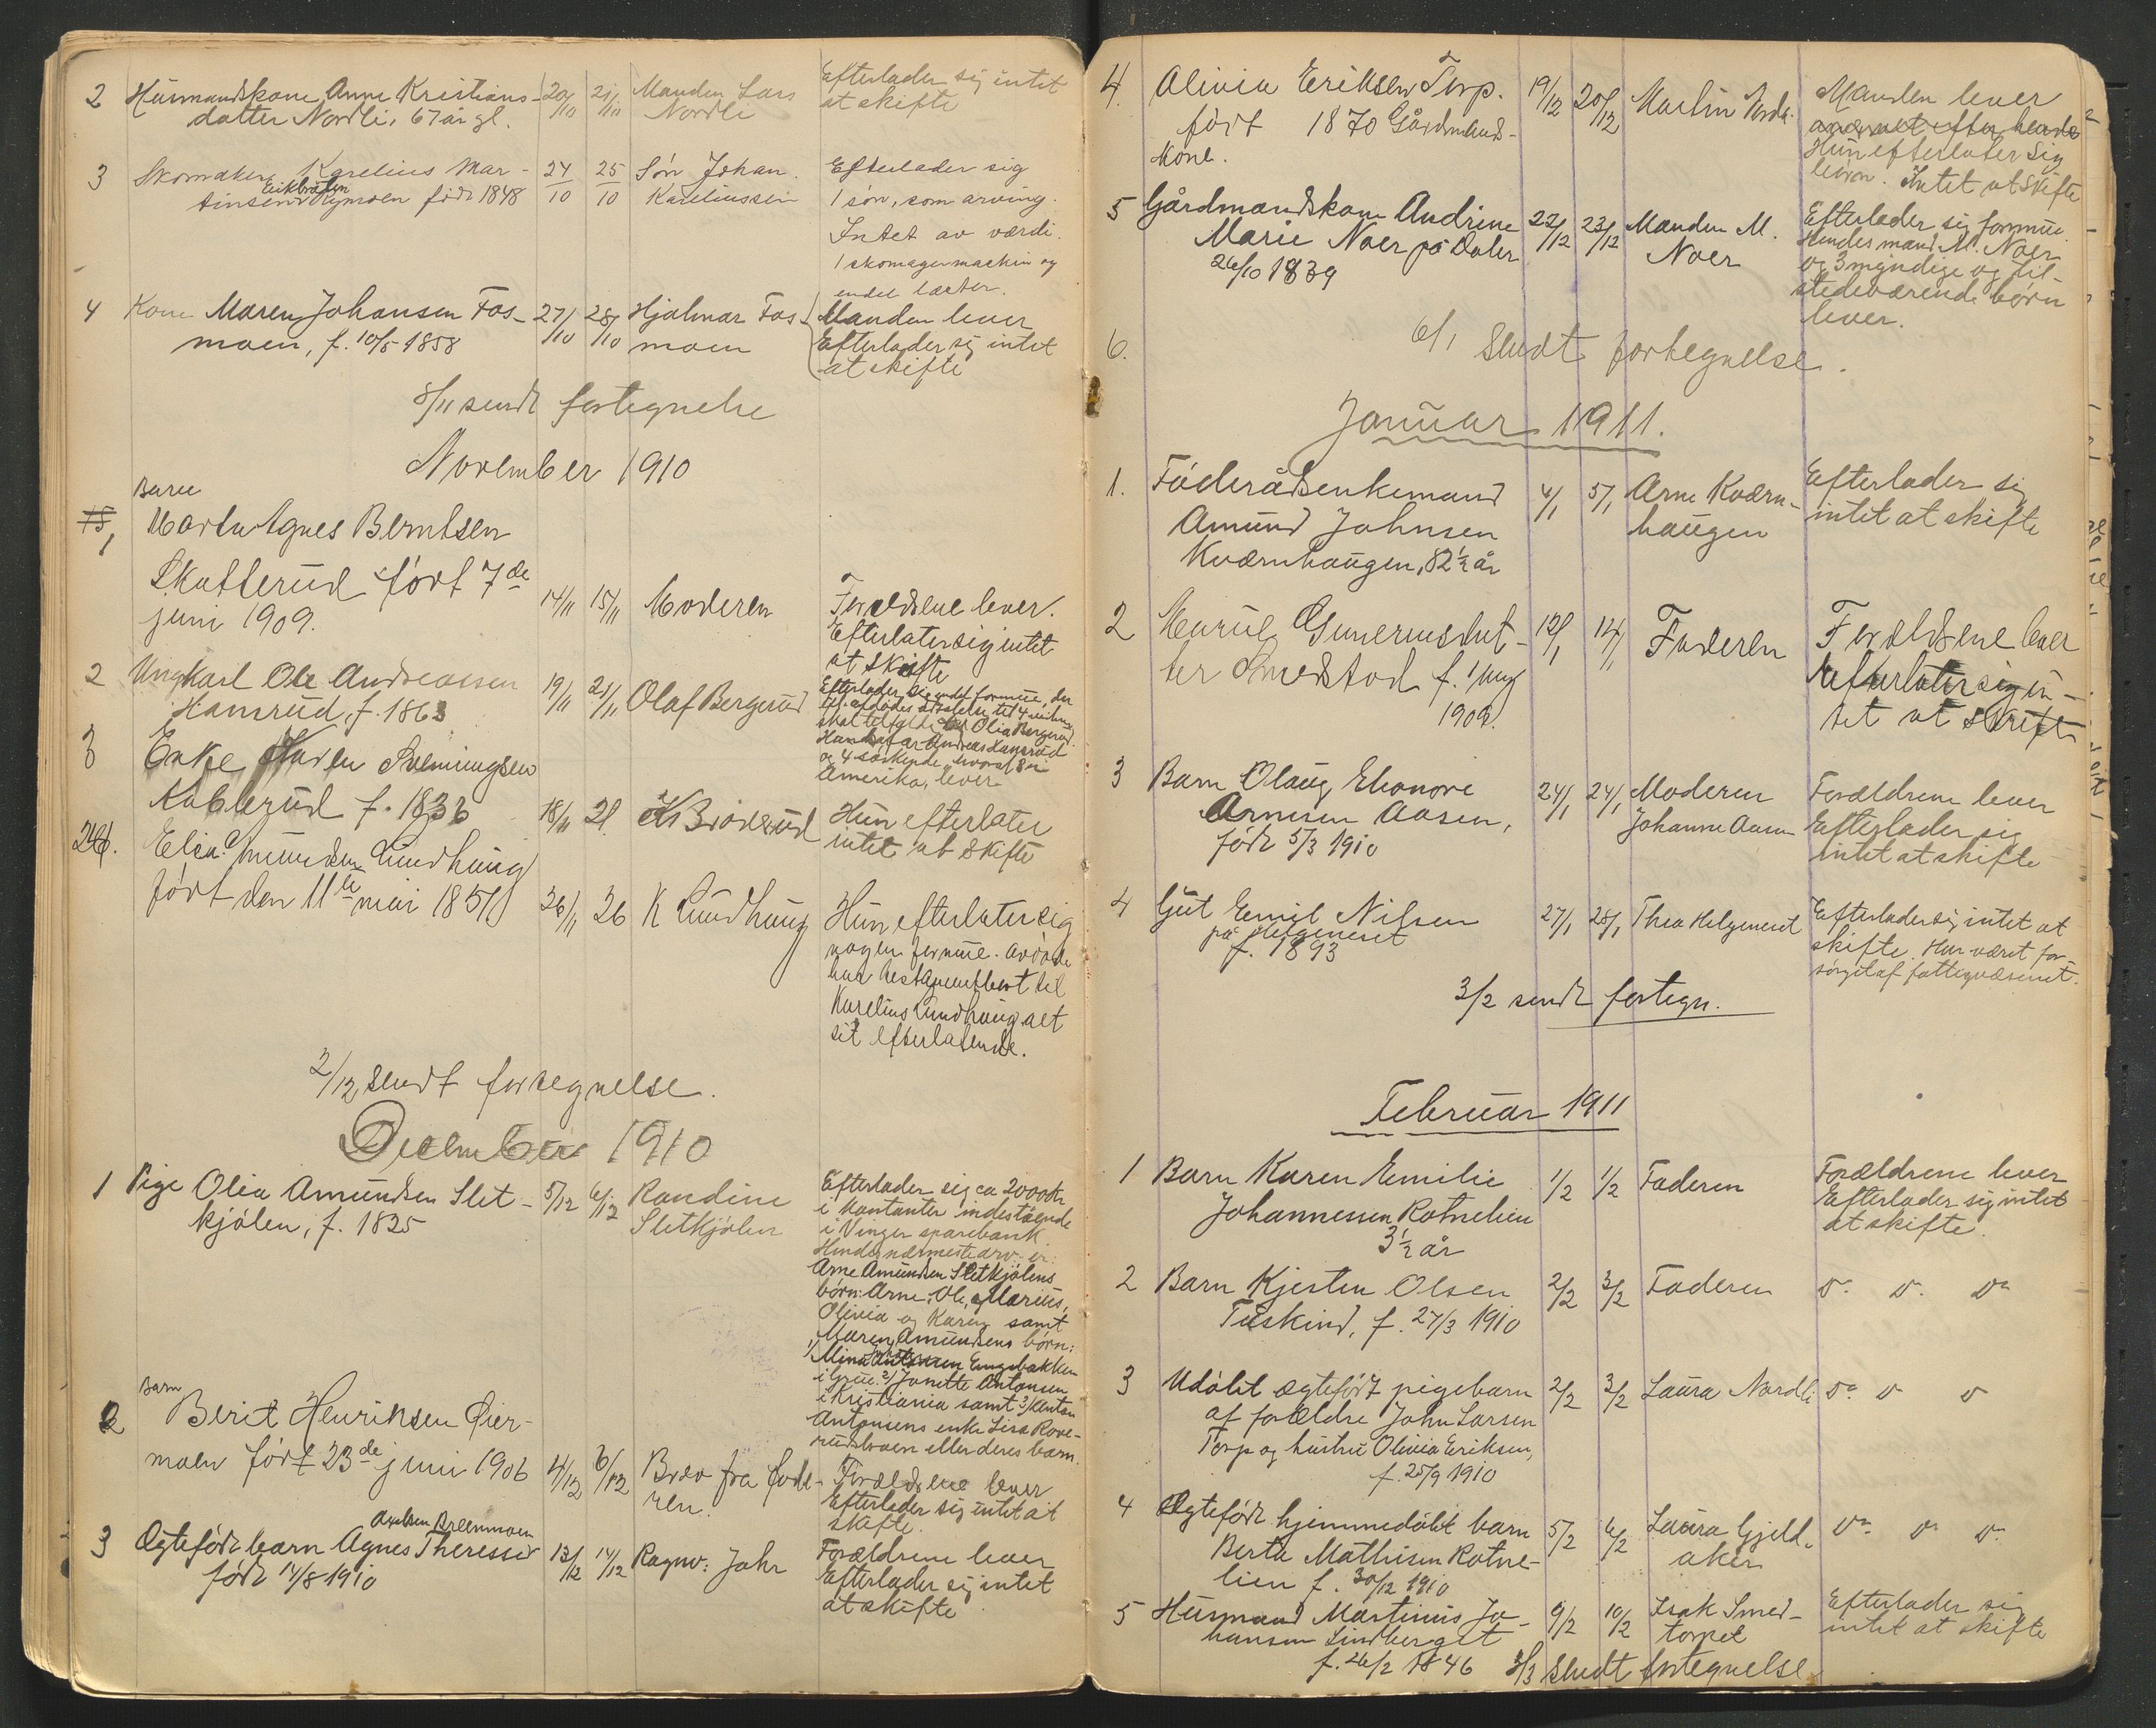 2 Husmandskone Anne Kristians- 20/10 21/10 Manden Lars Efterlader sig intet
datter Nordli, 67 år gl. Nordli at skifte
3 Skomaker Karelius Mar- 24/10 25/10 Søn Johan Efterlader sig
tinsen Rymoen født 1848 Kareliussen 1 søn, som arving.
Intet av værdi.
1 skomagermaskin og
endel læster.
4 Kone Maren Johansen Fos- 27/10 28/10 Hjalmar Fos- Manden lever
moen, f. 10/5 1858 moen Efterlader sig intet
at skifte
8/11 sendt fortegnelse
November 1910
Barn
1 Marta Agnes Berntsen
Skatterud født 7de 14/11 15/11 Moderen Forældrene lever.
juni 1909. Efterlater sig intet
at skifte
2 Ungkarl Ole Andreassen 19/11 21/11 Olaf Bergerud
Hansrud, f. 1863
Efterlader sig endel formue, der
skal tilfalde Olia Bergerud.
Hans far Andreas Hansrud
og 4 søskende, hvoraf 3 i
Amerika, lever
3 Enke Karen Svenningsen
Kablerud f. 1836 18/11 21. K Broderud Hun efterlater
intet at skifte
4. Elia Amundsen Lundhaug
født den 11te mai 1851 26/11 26 K Lundhaug Hun efterlater sig
nogen formue. Avdøde
har testamentert til
Karelius Lundhaug alt
sit efterlatende.
2/12 sendt fortegnelse.
December 1910
1 Pige Olea Amundsen Slet- 5/12 6/12 Randine Efterlader sig ca 2000 kr
kjølen, f. 1825 Sletkjølen i kontanter indestående
i Vinger sparebank.
Hendes nærmeste arv. er:
Arne Amundsen Sletkjølens
børn: Arne, Ole, Marius,
Olivia og Karen samt
Maren Amundsens børn:
1/ Mina Engebakken
i Grue. 2/ Janette Antonsen
i Kristiania samt 3/ Anton
Antonsens enke Lisa Rove-
rudsmoen eller deres barn.
Barn
2 Berit Henriksen Øier-
moen født 23de juni 1906 4/12 6/12 Brev fra fade- Forældrene lever
ren. Efterlader sig intet at
skifte.
Axelsen Breenmoen
3 Ægtefødt barn Agnes Theresse 13/12 14/12 Ragnv: Jahr Forældrene lever
født 14/8 1910 Efterlader sig intet
at skifte
4. Olivia Eriksen Torp. 19/12 20/12 Martin Manden lever
født 1870 Gårdmands-
kone.
Hun efterlater sig
børn. Intet at skifte
5 Gårdmandskone Andrine 22/12 23/12 Manden M. Efterlader sig formue.
Marie Noer på Daler Noer Hendes mand M. Noer
26/10 1839 og 3 myndige og til-
stedeværende børn
lever.
6. 6/1 Sendt fortegnelse.
Januar 1911.
1. Føderådsenkemand 4/1 5/1 Arne Kværn- Efterlader sig
Amund Johnsen haugen intet at skifte
Kværnhaugen, 82 1/2 år
2 Marie Gunerius dat- 12/1 14/1 Faderen Forældrene lever
ter Smedstad f. 1/Aug Efterlater sig in-
1909. tet at skifte
3 Barn Olaug Elionore 24/1 24/1 Moderen Forældrene lever
Arnesen Aasen, Johanne Aasen Efterlader sig
født 5/3 1910 intet at skifte
4 Gut Emil Nilsen 27/1 28/1 Thea Helgeneset Efterlader sig intet at
på Helgeneset skifte. Har været for-
f. 1893 sørget af fattigvæsenet.
3/2 sendt fortegn.
Februar 1911
1 Barn Karen Emilie 1/2 1/2 Faderen Forældrene lever
Johannessen Rotnelien Efterlader sig intet
3 1/2 år at skifte.
2 Barn Kjersten Olsen 2/2 3/2 Faderen Do Do Do
Tuskind, f. 27/3 1910
3 Udøbt ægtefødt pigebarn 2/2 3/2 Laura Nordli Do Do Do
af forældre John Larsen
Torp og hustru Olivia Eriksen,
f. 25/9 1910
4 Ægtefødt hjemmedøbt barn 5/2 6/2 Laura Gjeld- Do Do Do
Berta Mathisen Rotne- aker
lien f. 30/12 1910
5 Husmand Martinius Jo- 9/2 10/2 Isak Smed- Efterlader sig
hansen Lindberget torpet intet at skifte
f. 26/2 1846 3/3 Sendt fortegnelse